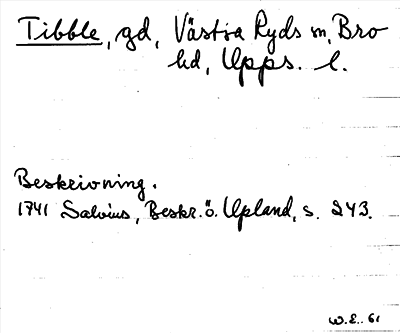 Tibble, gd, Västra Ryds sn, Bro
hd, Upps. l.
Beskrivning.
1741 Salvius, Beskr. ö. Upland, s. 243.
W.E. 61